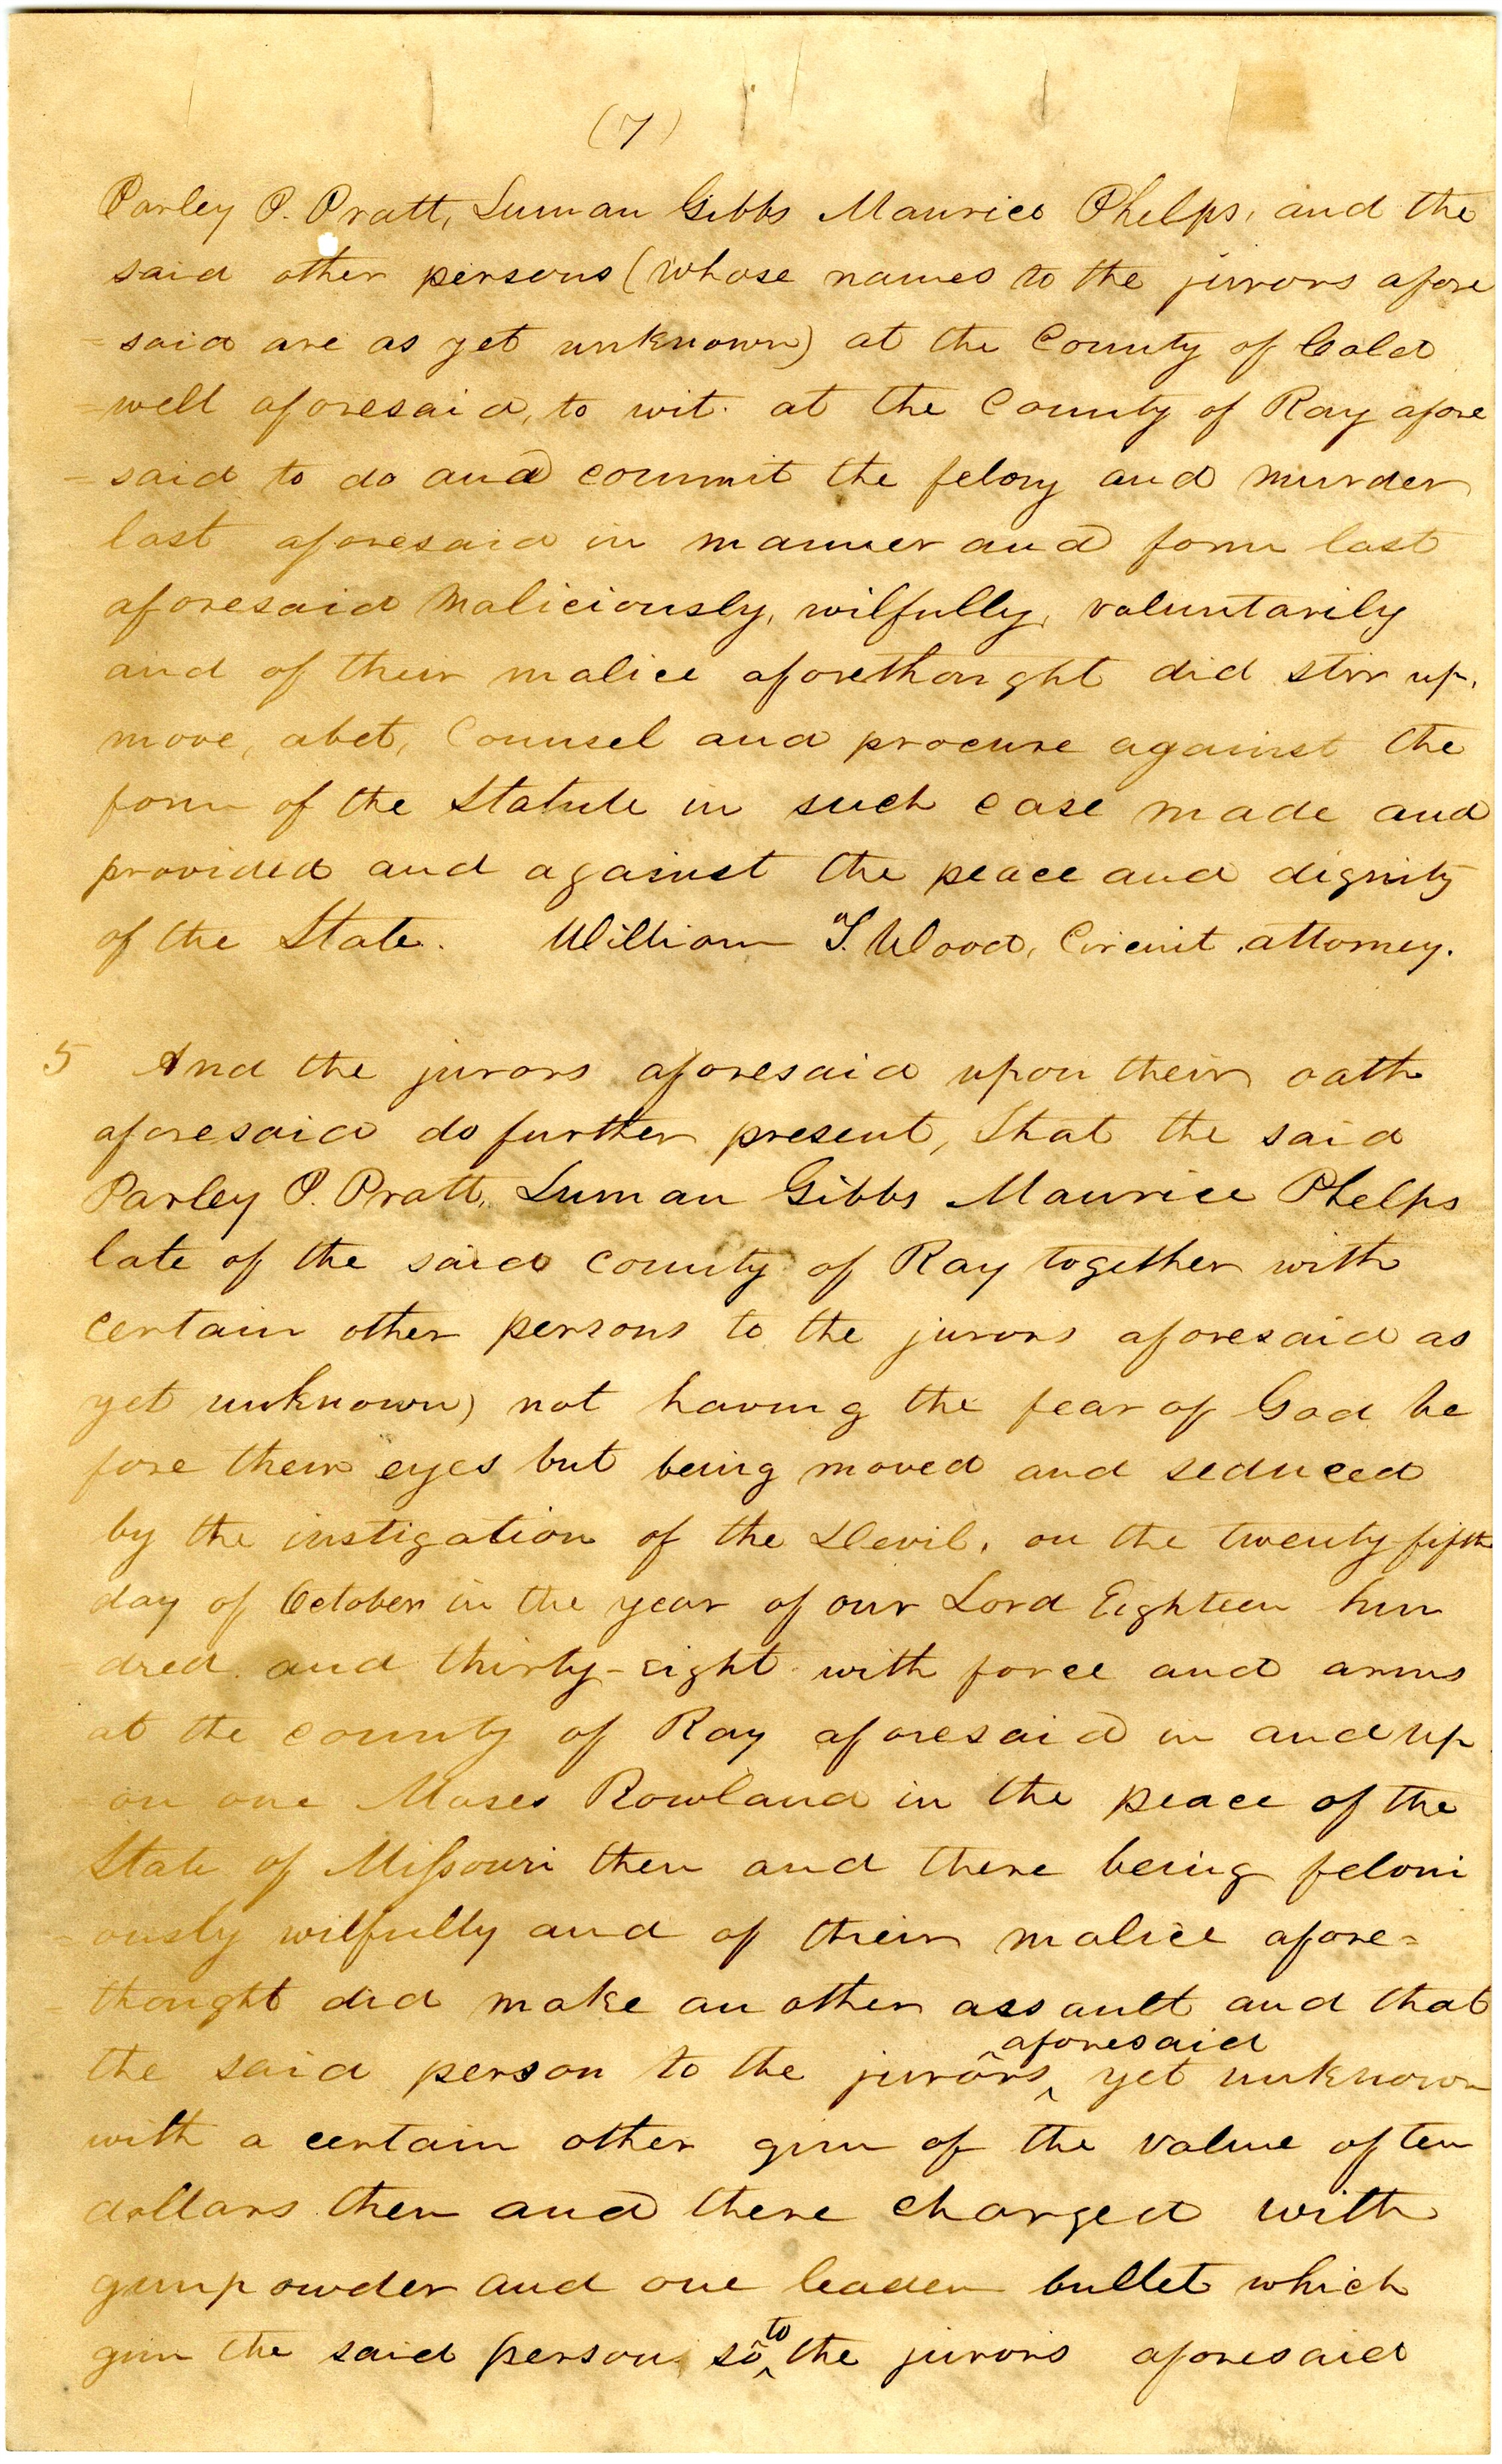 (7)
Parley P. Pratt, Luman Gibbs Maurice Phelps, and the
said other persons (whose names to the jurors afore
=said are as yet unknown) at the County of Cald
=well aforesaid, to wit. at the County of Ray afore
=said to do and commit the felony and murder
last aforesaid in manner and form last
aforesaid maliciously, wilfully, voluntarily
and of their malice aforethought did stir up,
move, abet, Counsel and procure against the
form of the Statute in such case made and
provided and against the peace and dignity
of the State. William T. Wood, Circuit attorney.
5 And the jurors aforesaid upon their oath
aforesaid do further present, that the said
Parley P. Pratt, Luman Gibbs Maurice Phelps
late of the said county of Ray together with
certain other persons to the jurors aforesaid as
yet unknown) not having the fear of God be
fore their eyes but being moved and seduced
by the instigation of the Devil, on the twenty-fifth
day of October in the year of our Lord Eighteen hun
dred and thirty-eight with force and arms
at the county of Ray aforesaid in and up
=on one Moses Rowland in the peace of the
State of Missouri then and there being feloni
=ously wilfully and of their malice afore=
=thought did make an other assault and that
aforesaid
the said person to the jurors yet unknown
with a certain other gun of the value of ten
dollars then and there charged with
gunpowder and one leaden bullet which
to
gun the said person so the jurors aforesaid